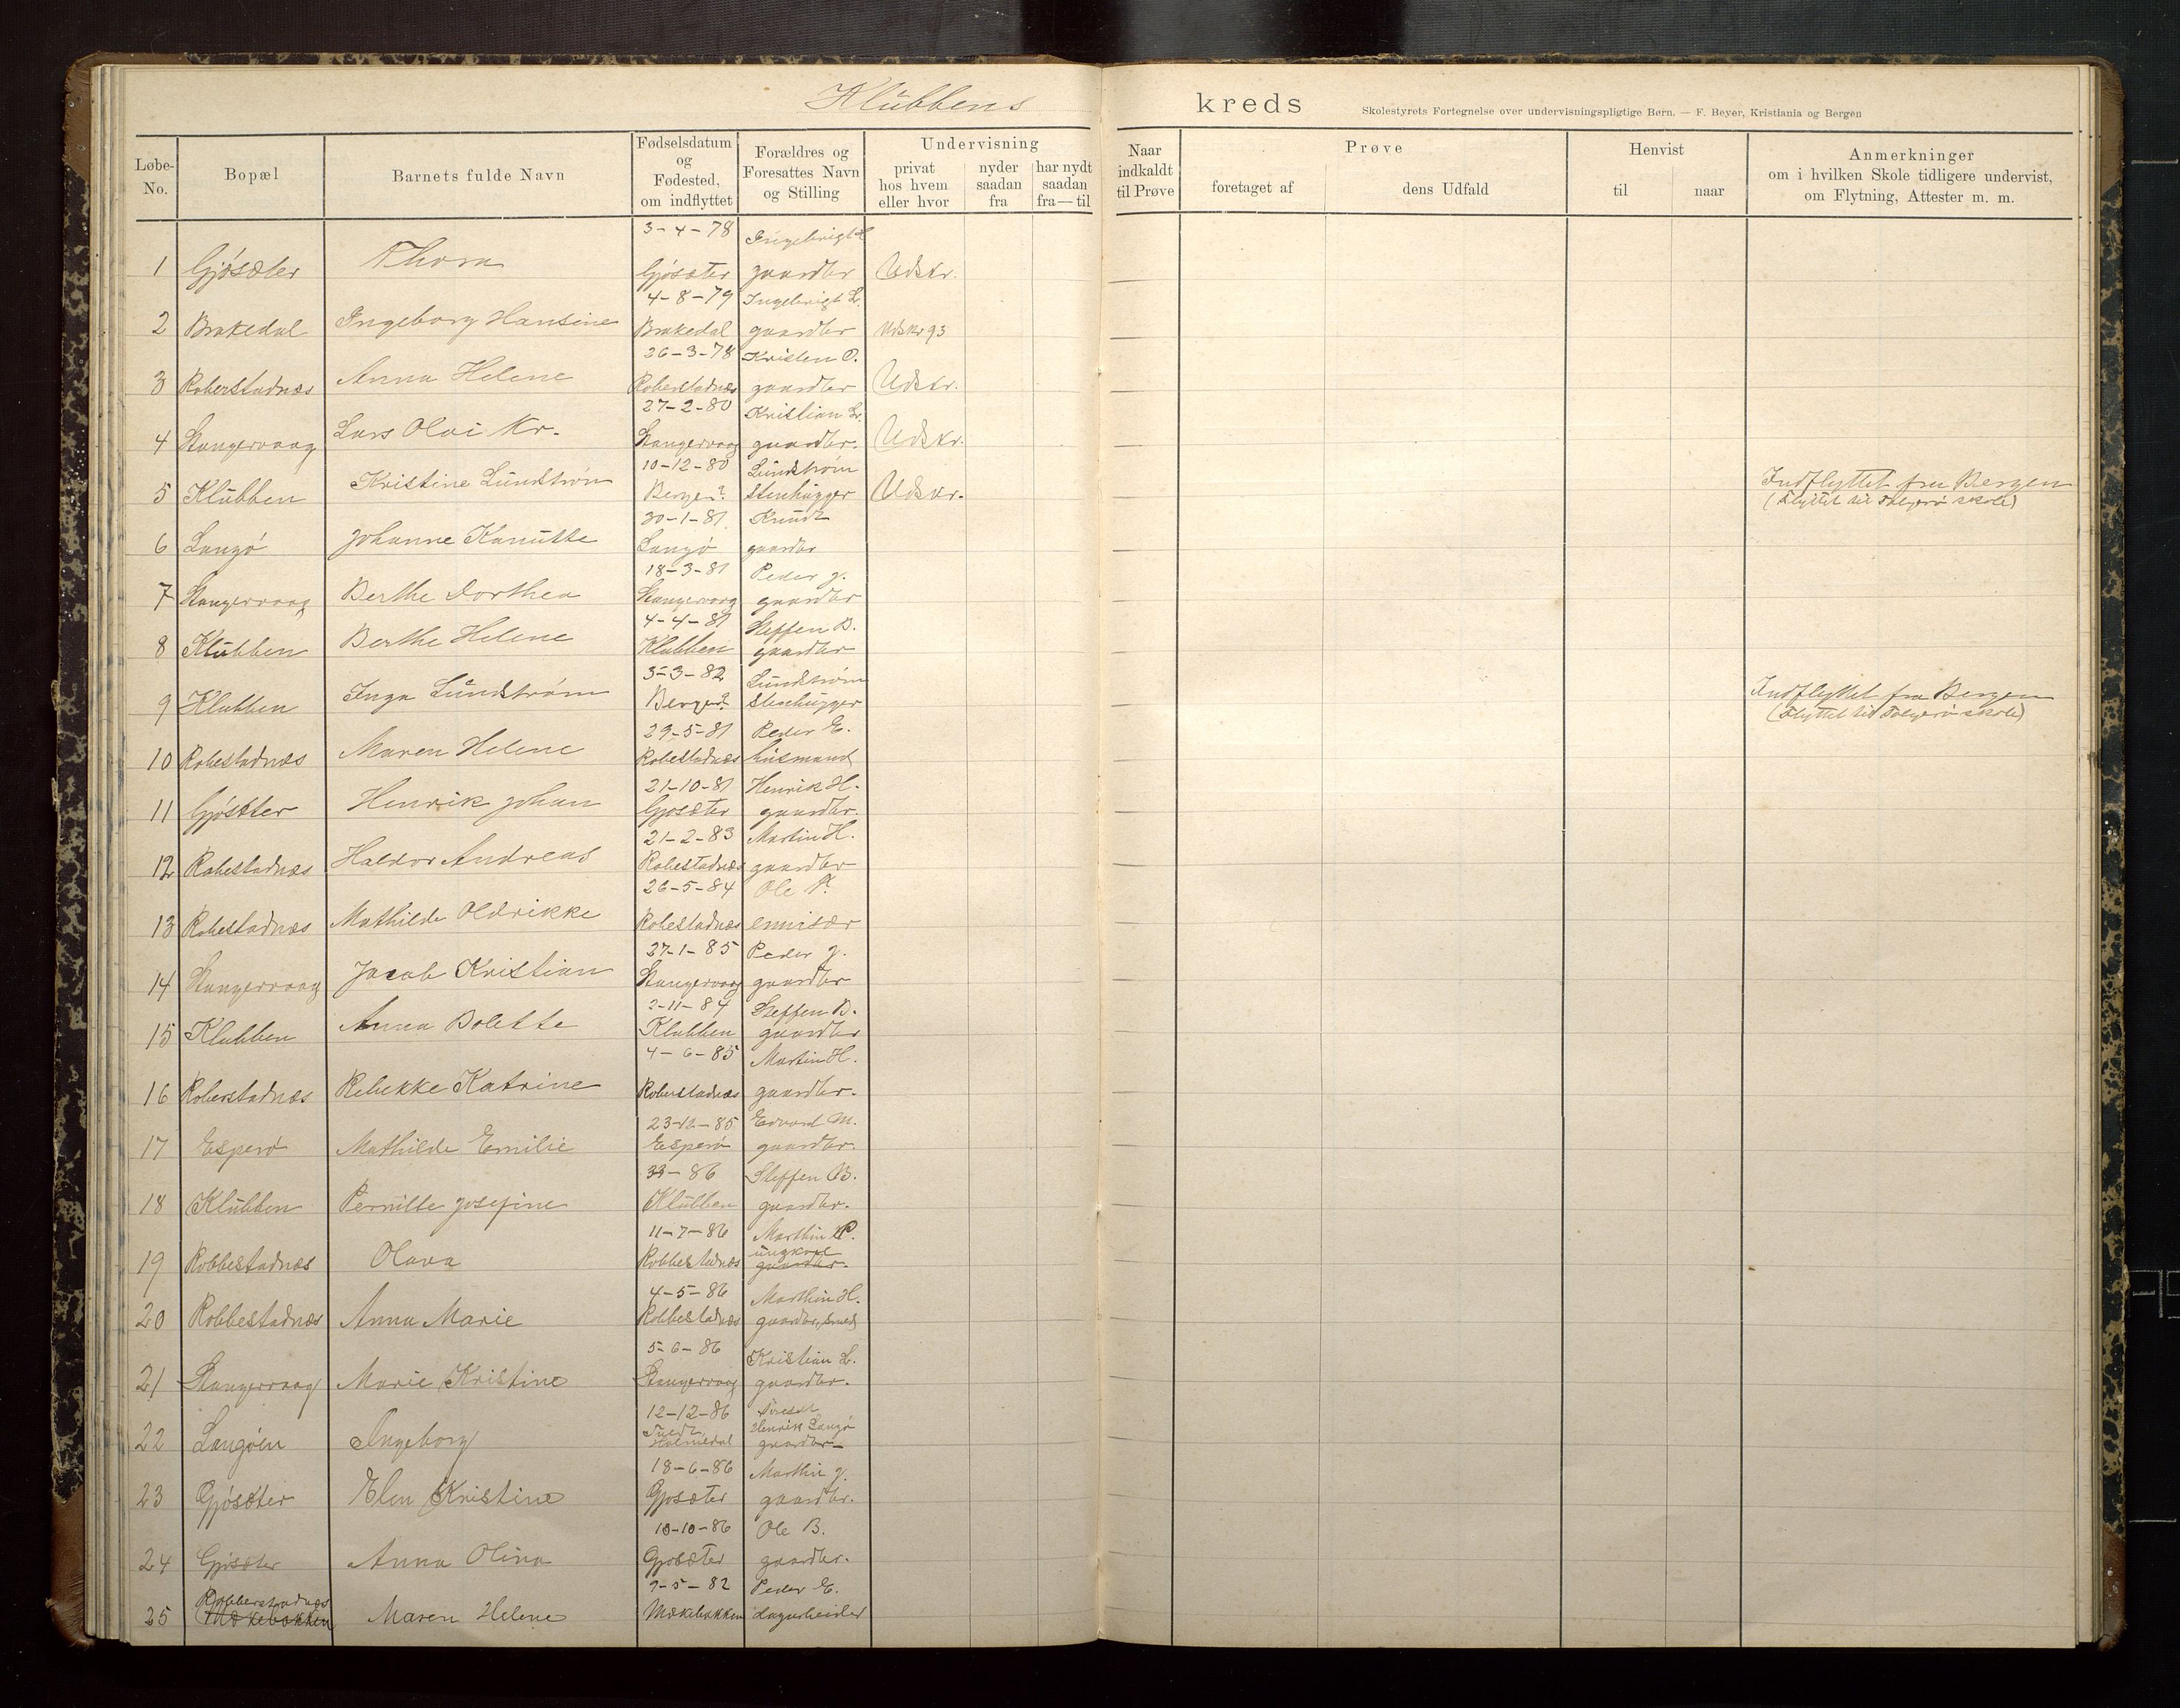 Klubbens kreds
Skolestyrets Fortegnelse over undervisningspligtige Børn. — F. Beyer, Kristiania og Bergen
Løbe-No. Bopæl Barnets fulde Navn Fødselsdatum og Fødested, om indflyttet Forældres og Foresattes Navn og Stilling Undervisning privat hos hvem eller hvor nyder saadan fra har nydt saadan fra—til Naar indkaldt til Prøve Prøve foretaget af dens Udfald Henvist til naar Anmerkninger om i hvilken Skole tidligere undervist, om Flytning, Attester m. m.
3-4-78 Ingebrigt
1 Gjøsæter Thora Gjøsæter gaardbr Udskr.
4-8-79 Ingebrigt L.
2 Brakedal Ingeborg Hansine Brakedal gaardbr Udskr 93
26-3-78 Kristen O.
3 Roberstadnæs Anna Helene Roberstadnæs gaardbr Udskr.
27-2-80 Kristian L.
4 Stangervaag Lars Olai Kr. Stangervaag gaardbr. Udskr.
10-12-80 Lundstrøm
5 Klubben Kristine Lundstrøm Bergen? Stenhugger Udskr. Indflyttet fra Bergen
(Flyttet til Folgerø skole)
30-1-81 Knudt
6 Langø Johanne Kanutte Langø gaardbr
18-3-81 Peder J.
7 Stangervaag Berthe Dorthea Stangervaag gaardbr
4-4-81 Steffen B.
8 Klubben Berthe Helene Klubben gaardbr
3-3-82 Lundstrøm
9 Klubben Inga Lundstrøm Bergen? Stenhugger Indflyttet fra Bergen
(Flyttet til Folgerø skole)
29-5-81 Peder E.
10 Robestadnæs Maren Helene Robestadnæs husmand
21-10-81 Henrik H.
11 Gjøsæter Henrik Johan Gjøsæter gaardbr.
21-2-83 Martin H.
12 Robestadnæs Haldor Andreas Robestadnæs gaardbr
26-5-84 Ole
13 Robestadnæs Mathilde Oldrikke Robestadnæs emisær
27-1-85 Peder J.
14 Stangervaag Jacob Kristian Stangervaag gaardbr
2-11-84 Steffen B.
15 Klubben Anna Bolette Klubben gaardbr
4-6-85 Martin H.
16 Roberstadnæs Rebekke Katrine Roberstadnæs gaardbr.
23-12-85 Edvard M.
17 Esperø Mathilde Emilie Esperø gaardbr.
33-86 Steffen B.
18 Klubben Pernille Josefine Klubben gaardbr.
11-7-86 Marthin P.
19 Robbestadnæs Olava Robbestadnæs ungkarl gaardbr.
4-5-86 Marthin H.
20 Robbestadnæs Anna Marie Robbestadnæs gaardbr, smed
5-6-86 Kristian L.
21 Stangervaag Marie Kristine Stangervaag gaardbr.
12-12-86 Foresat
22 Langøen Ingeborg Holmedal Henrik Langø gaardbr
18-6-86 Marthin J.
23 Gjøsæter Elen Kristine Gjøsæter gaardbr.
10-10-86 Ole B.
24 Gjøsæter Anna Olina Gjøsæter gaardbr.
Robberstadnæs 9-5-82 Peder E.
25 Mækebakken Maren Helene Mækebakken Dagarbeider